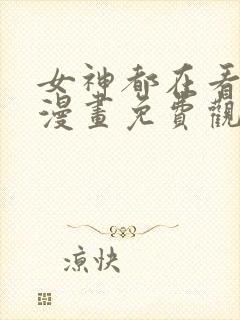 女神都在看
漫畫免費觀
涼快